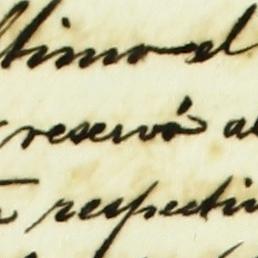 ltimo el
reservó al
respectiv